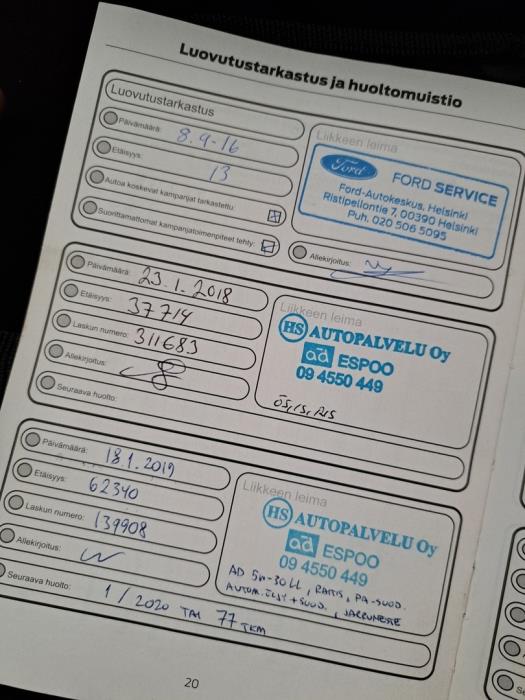 Luovutustarkastus ja huoltomuistio
Luovutustarkastus
Päivämäärä: 8.9.16
Etäisyys: 13
Autoa koskevat kampanjat tarkastettu:
Suorittamattomat kampanjatoimenpiteet tehty:
Liikkeen leima
Ford
FORD SERVICE
Ford-Autokeskus, Helsinki
Ristipellontie 7, 00390 Helsinki
Puh. 020 506 5095
Allekirjoitus:
Päivämäärä: 23.1.2018
Etäisyys: 37714
Laskun numero: 311683
Allekirjoitus:
Seuraava huolto:
Liikkeen leima
HS AUTOPALVELU Oy
ad ESPOO
09 4550 449
Päivämäärä: 18.1.2019
Etäisyys: 62340
Laskun numero: 139908
Allekirjoitus:
Seuraava huolto: 1/2020 TAI 77 TKM
Liikkeen leima
HS AUTOPALVELU Oy
ad ESPOO
09 4550 449
AD 5W-30 LL, RAITIS, PA-SUOD.
AUTOM. ÖLJY + SUOD., JARRUNESTE
20